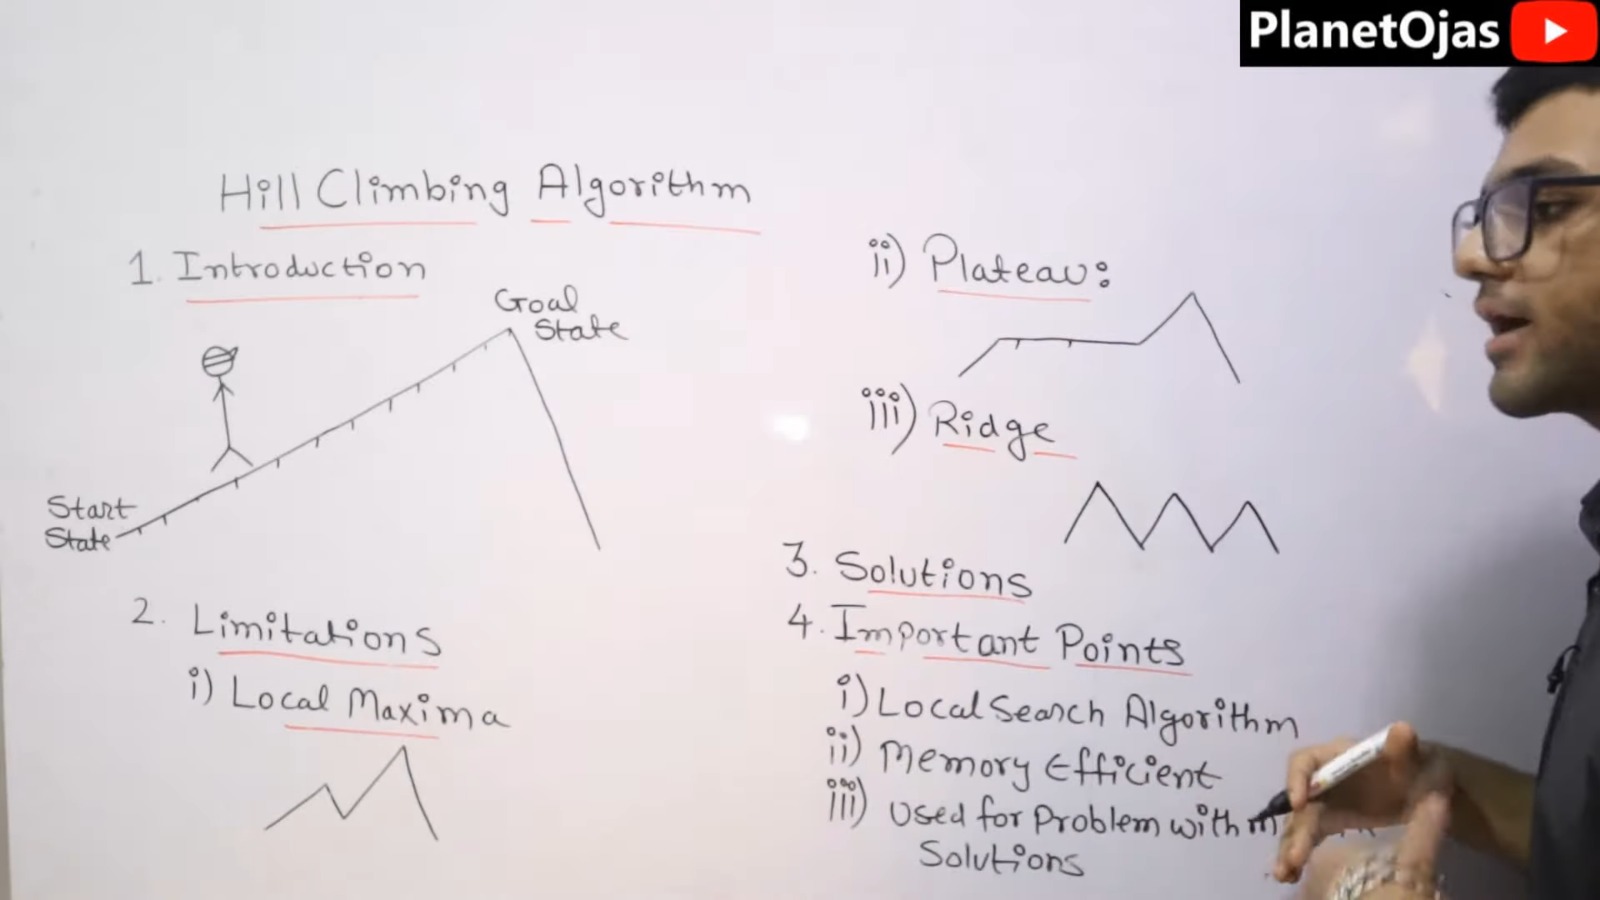 PlanetOjas
Hill Climbing Algorithm
1. Introduction
Goal
State
Start
State
2. Limitations
i) Local Maxima
ii) Plateau:
iii) Ridge
3. Solutions
4. Important Points
i) Local Search Algorithm
ii) Memory Efficient
iii) Used for Problem with
Solutions